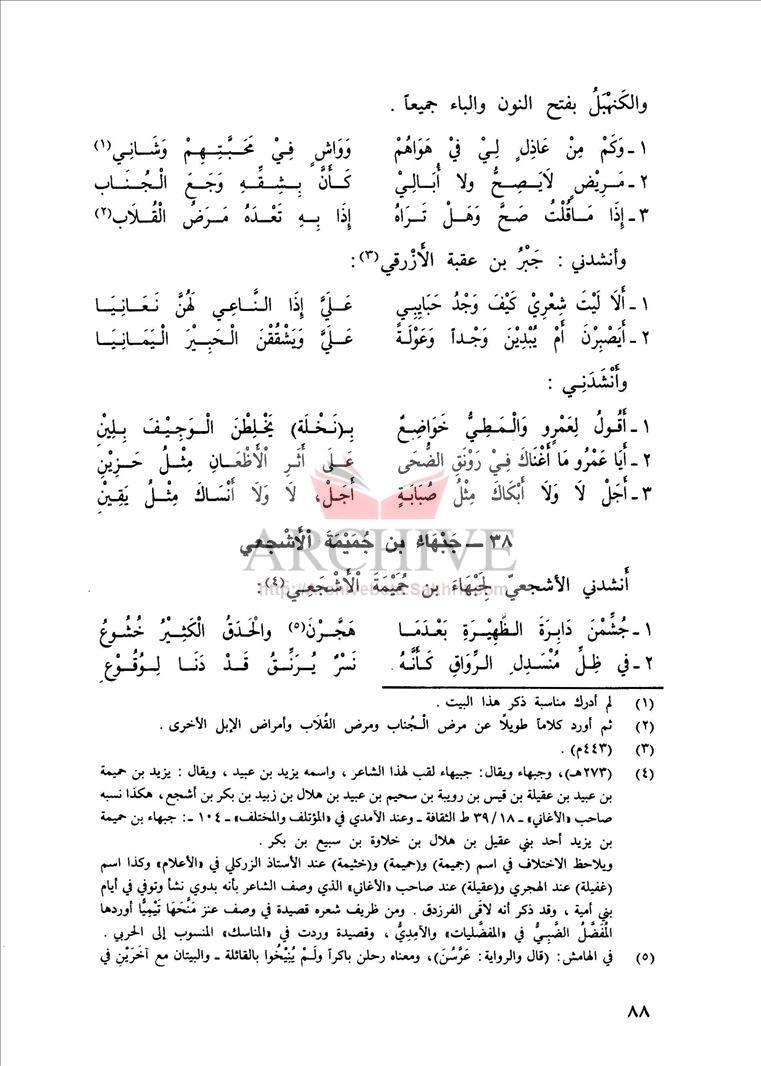 والكَنهْبَلُ بفتح النون والباء جميعاً .
١ ـ وَكَمْ مِنْ عَاذِلٍ لِيْ فيْ هَوَاهُمْ وَوَاشٍ فِيْ مَحَبَّتِهِمْ وَشَانِي(١)
٢ ـ مَرِيْضٍ لَايَصِحُّ ولا أُبَالِيْ كَأَنَّ بِشِقِّهِ وَجَعَ الْجُنَاب
٣ ـ إذَا مَاقُلْتُ صَحَّ وَهَلْ تَرَاهُ إذَا بِهِ تَعْدَهُ مَرَضُ الْقُلَاب(٢)
وأنشدني : جَبْرُ بن عقبة الأَزْرقي(٣):
١ ـ أَلَا لَيْتَ شِعْرِيْ كَيْفَ وَجْدُ حَبَايِبِي عَلَيَّ إذَا النَّاعِي لَهُنَّ نَعَانِيَا
٢ ـ أَيَصْبِرْنَ أَمْ يُبْدِيْنَ وَجْداً وَعَوْلَةً عَلَيَّ وَيَشْقُقْنَ الْحَبِيْرَ الْيَمَانِيَا
وأَنْشَدَنِي :
١ ـ أَقُولُ لِعَمْرٍو وَالْمَطِيُّ خَوَاضِعٌ بِـ(نَخْلَة) يَخْلِطْنَ الْوَجِيْفَ بِلِيْنِ
٢ ـ أَيَا عَمْرُو مَا أَغْنَاكَ فِيْ رَوْنَقِ الضُّحَى عَلَى أَثَرِ الْأَظْعَانِ مِثْلُ حَزِيْنِ
٣ ـ أَجَلْ لَا وَلَا أَبْكَاكَ مِثْلُ صَبَابَةٍ أَجَلْ، لَا وَلَا أَنْسَاكَ مِثْلُ يَقِيْنِ
ARCHIVE
٣٨ ــ جَبْهَاءُ بن حُمَيْمَةَ الْأَشْجعي
أَنشدني الأشجعيّ لِجَبْهَاءَ بن حُمَيْمَةَ الْأَشْجَعِي(٤):
١ ـ جُشِّمْنَ دَابِرَةَ الظَّهِيْرَةِ بَعْدَمَا هَجَّرْنَ(٥) والْحَدَقُ الْكَثِيْرُ خُشُوعُ
٢ ـ في ظِلِّ مُنْسَدِلِ الرِّوَاقِ كَأَنَّهُ نَسْرٌ يُرَنِّقُ قَدْ دَنَا لِوُقُوْعِ
(١) لم أدرك مناسبة ذكر هذا البيت .
(٢) ثم أورد كلاماً طويلاً عن مرض الْجُناب ومرض القُلَاب وأمراض الإبل الأخرى .
(٣) (٤٤٣م) .
(٤) (٢٧٣هـ)، وجبهاء ويقال: جبيهاء لقب لهذا الشاعر ، واسمه يزيد بن عبيد ، ويقال : يزيد بن حميمة
بن عبيد بن عقيلة بن قيس بن رويبة بن سحيم بن عبيد بن هلال بن زبيد بن بكر بن أشجع ، هكذا نسبه
صاحب «الأغاني» ــ ٣٩/١٨ ط الثقافة ــ وعند الآمدي في «المؤتلف والمختلف» ــ ١٠٤ ــ: جبهاء بن حميمة
بن يزيد أحد بني عقيل بن هلال بن خلاوة بن سبيع بن بكر .
ويلاحظ الاختلاف في اسم (جميمة) و(حميمة) و(خثيمة) عند الأستاذ الزركلي في «الأعلام» وكذا اسم
(غفيلة) عند الهجري و(عقيلة) عند صاحب «الأغاني» الذي وصف الشاعر بأنه بدوي نشأ وتوفي في أيام
بني أمية ، وقد ذكر أنه لاقَى الفرزدق . ومن ظريف شعره قصيدة في وصف عنز مَنَحَهَا تَيْمِيًّا أوردها
الْمُفَضَّلُ الضَّبِيُّ في «المفضَّليات» والآمِدِيُّ ، وقصيدة وردت في «المناسك» المنسوب إلى الحربي .
(٥) في الهامش: (قال والرواية: عَرَّسْنَ)، ومعناه رحلن باكراً ولَمْ يُنِيْخُوا بالقائلة ــ والبيتان مع آخَرَيْنِ في
٨٨